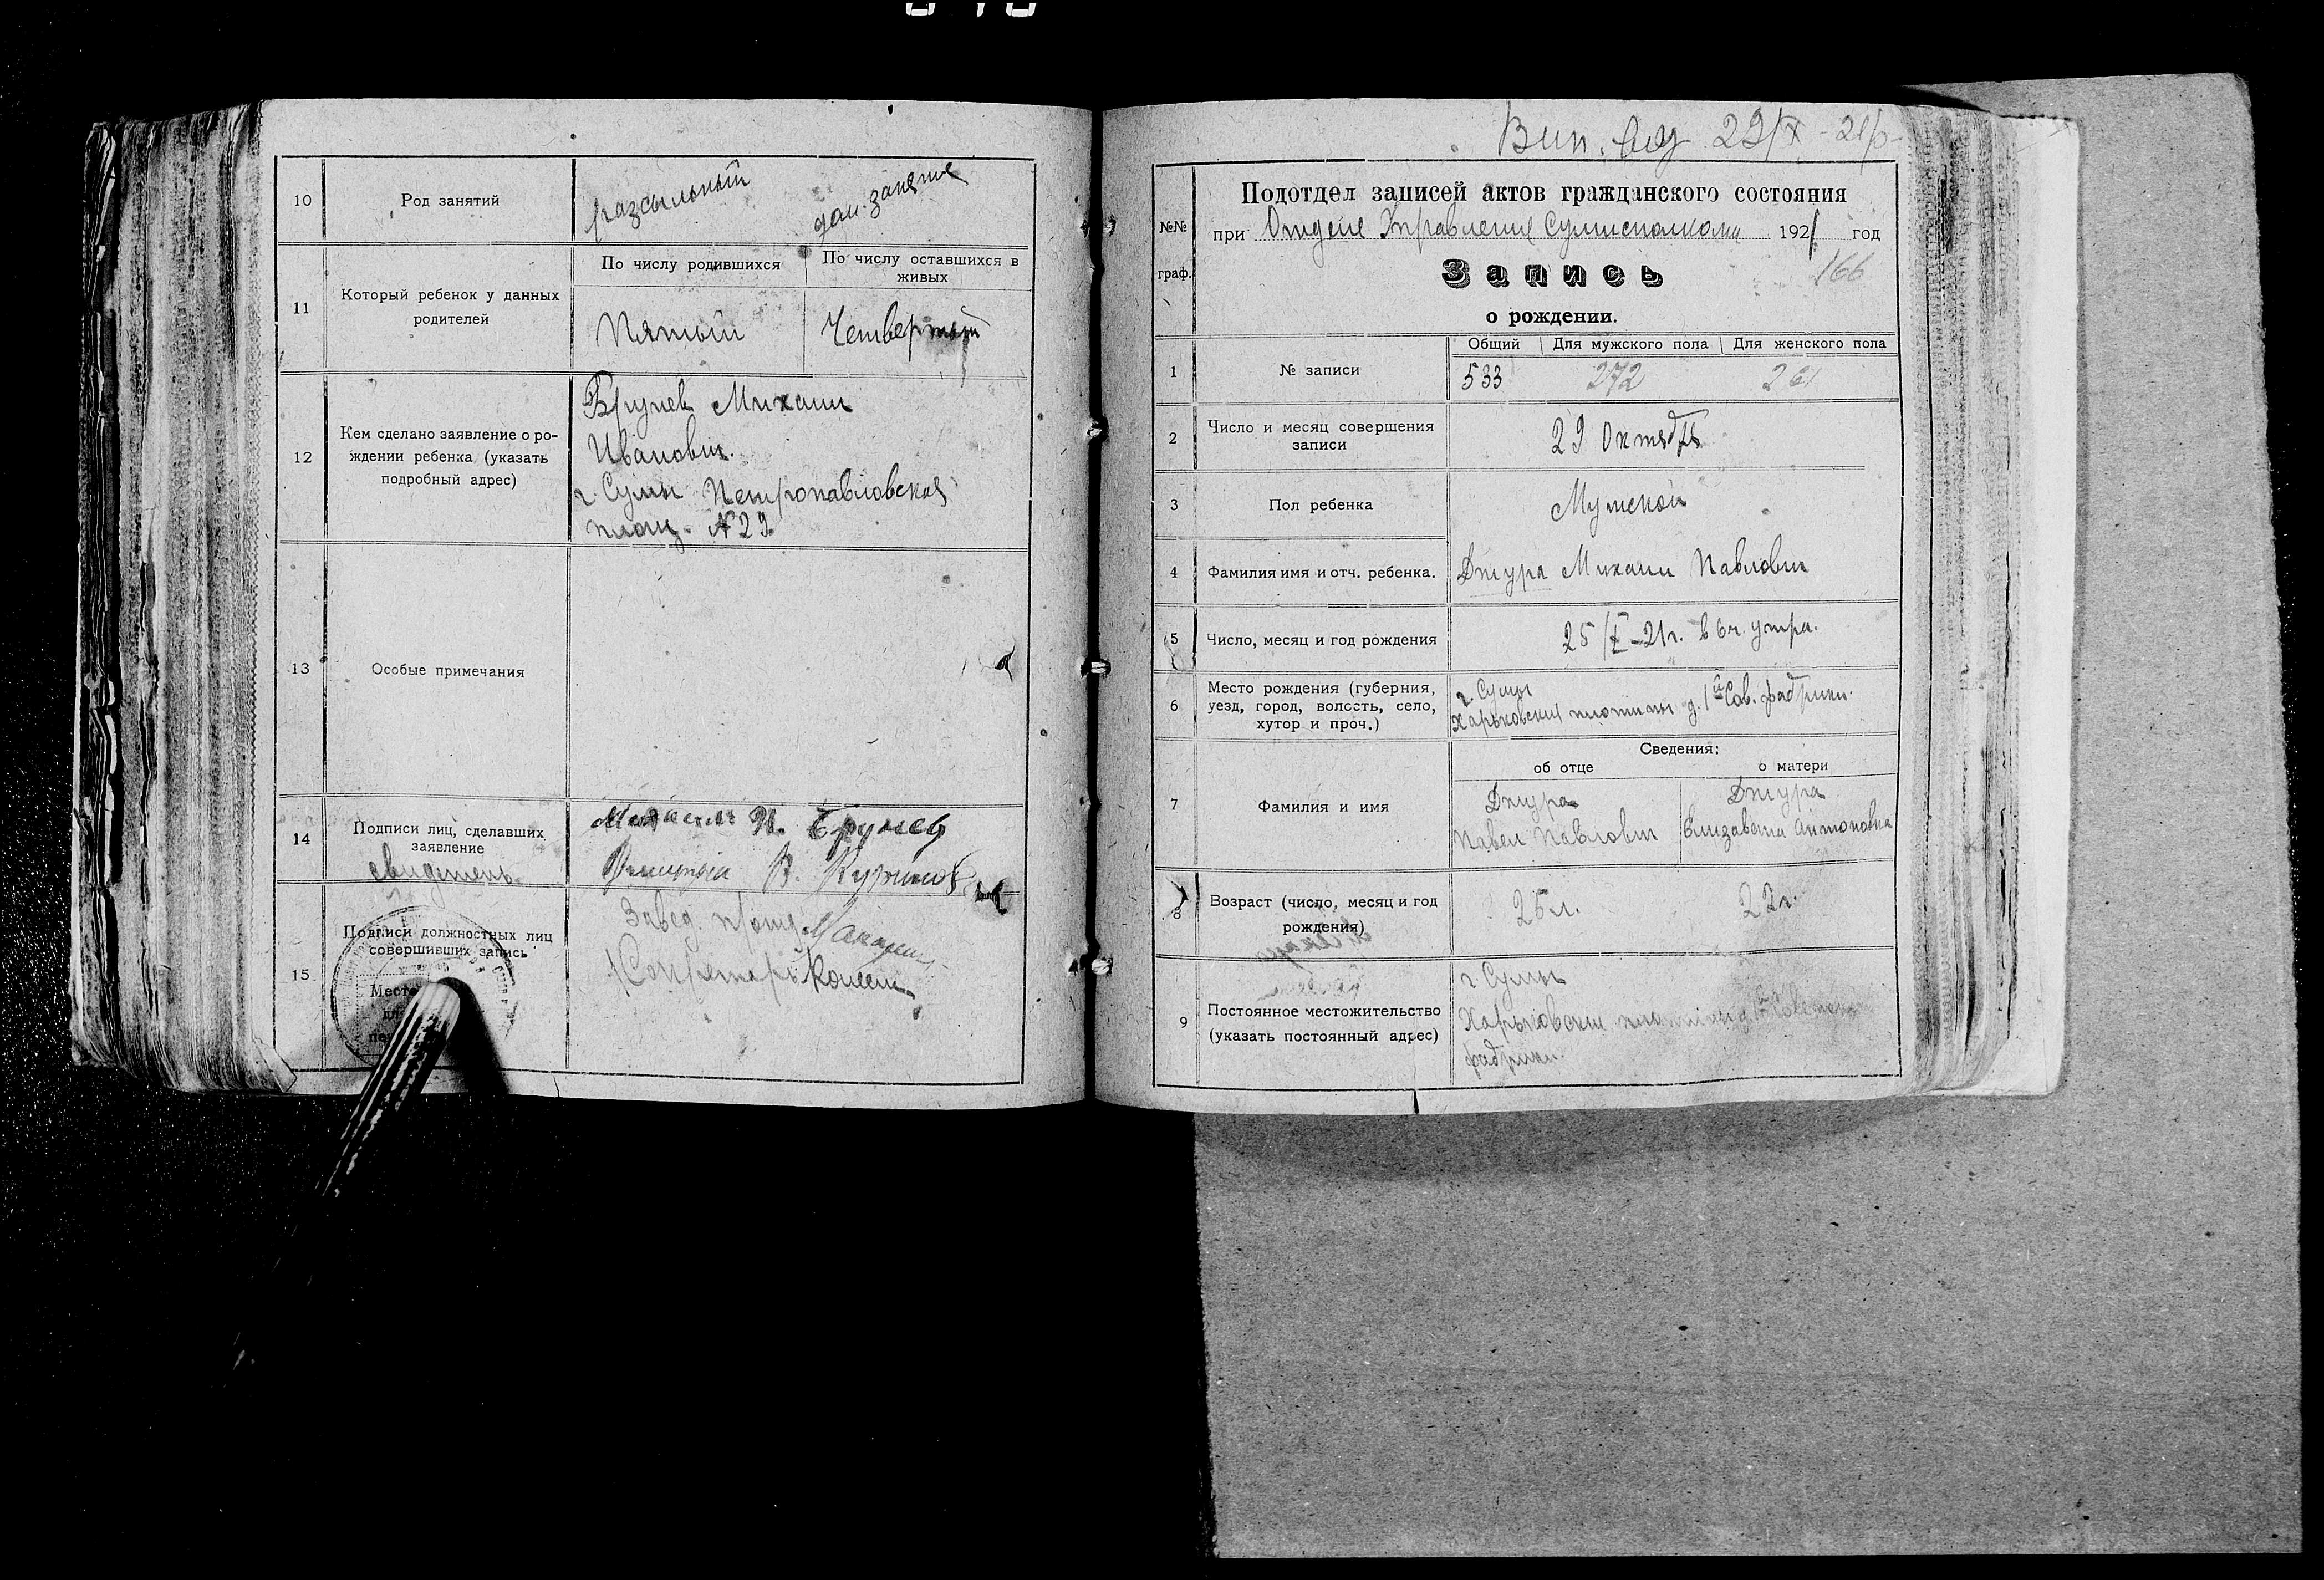 10
Род занятий
разсыльный
дом. занятие
11
Который ребенок у данных
родителей
По числу родившихся
По числу оставшихся в
живых
Пятый
Четвертый
12
Кем сделано заявление о ро-
ждении ребенка (указать
подробный адрес)
Брунев Михаил
Иванович.
г. Сумы Петропавловская
площ. №29
13
Особые примечания
14
Подписи лиц, сделавших
заявление
свидетель
Михаил И. Брунев
В.
15
Подписи должностных лиц
совершивших запись
Место
Завед. п/отд
Секретарь
Вип. вид 29/X-21р
№№
граф.
Подотдел записей актов гражданского состояния
при Отделе Управления Сумисполкома 1921 год
Запись
166
о рождении.
1
№ записи
Общий
Для мужского пола
Для женского пола
533
272
261
2
Число и месяц совершения
записи
29 Октября
3
Пол ребенка
Мужской
4
Фамилия имя и отч. ребенка.
Джура Михаил Павлович
5
Число, месяц и год рождения
25/X-21г. в 6ч. утра.
6
Место рождения (губерния,
уезд, город, волость, село,
хутор и проч.)
г. Сумы
Харьковский плотины д. 1й Сов. фабрики.
7
Фамилия и имя
Сведения:
об отце
о матери
Джура
Павел Павлович
Джура
Елизавета Антоновна
8
Возраст (число, месяц и год
рождения)
25л.
22г.
9
Постоянное местожительство
(указать постоянный адрес)
г. Сумы
Харьковский
фабрики.